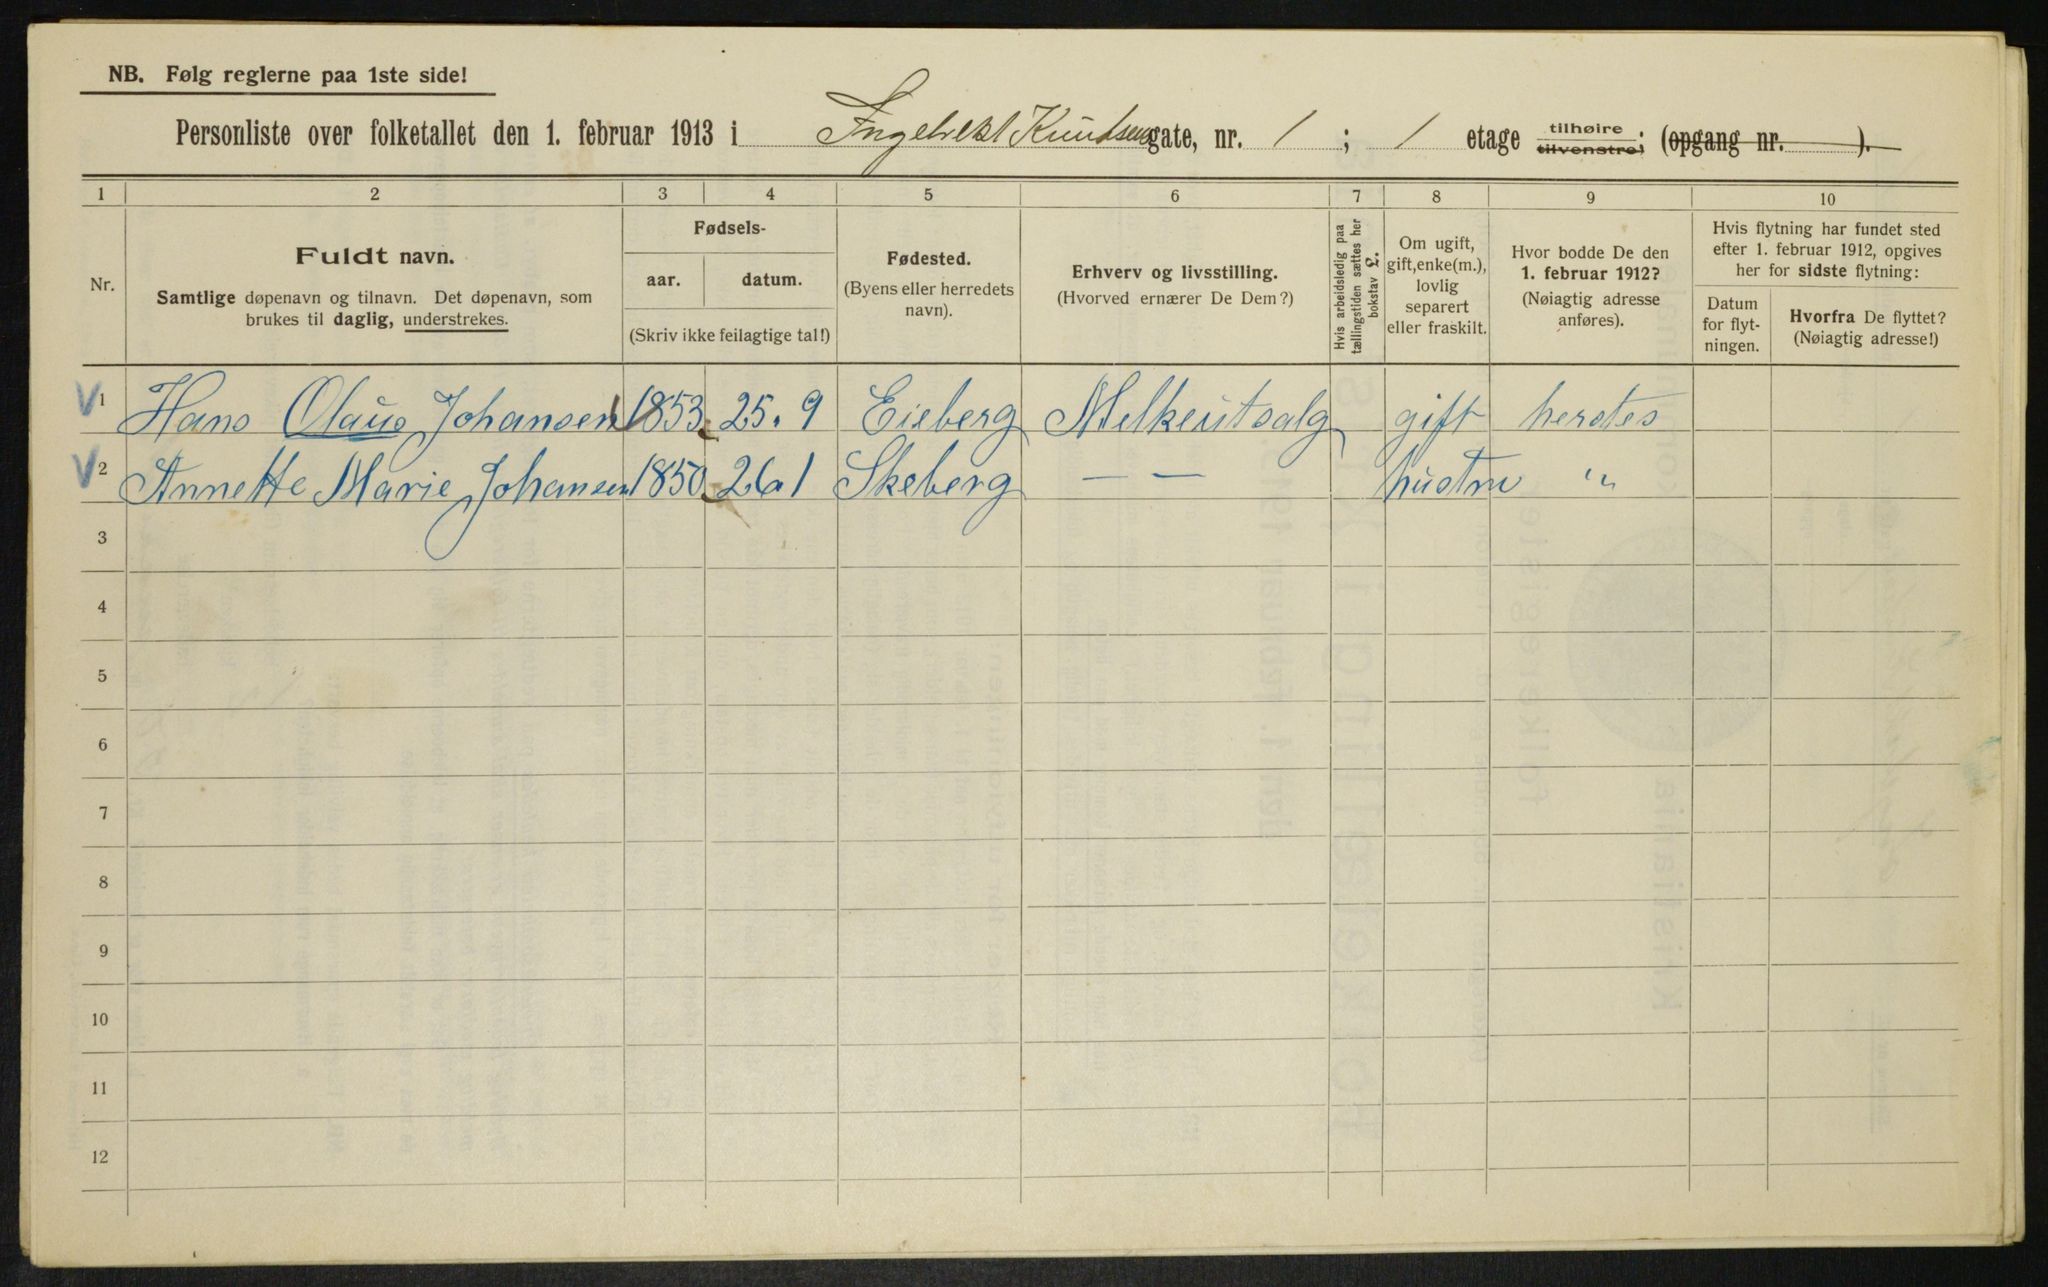 NB. Følg reglerne paa 1ste side!
Personliste over folketallet den 1. februar 1913 i Ingebrekt Knudsens gate, nr. 1 ; 1 etage tilhøire tilvenstre; (opgang nr. ).
1 2 3 4 5 6 7 8 9 10
Nr.
Fuldt navn.
Samtlige døpenavn og tilnavn. Det døpenavn, som
brukes til daglig, understrekes.
Fødsels-
aar. datum.
(Skriv ikke feilagtige tal!)
Fødested.
(Byens eller herredets
navn).
Erhverv og livsstilling.
(Hvorved ernærer De Dem?)
Hvis arbeidsledig paa
tællingstiden sættes her
bokstav L.
Om ugift,
gift, enke(m.),
lovlig
separert
eller fraskilt.
Hvor bodde De den
1. februar 1912?
(Nøiagtig adresse
anføres).
Hvis flytning har fundet sted
efter 1. februar 1912, opgives
her for sidste flytning:
Datum
for flyt-
ningen.
Hvorfra De flyttet?
(Nøiagtig adresse!)
V 1 Hans Olaus Johansen 1853 25. 9 Eieberg Melkeutsalg gift herstes
V 2 Annette Marie Johansen 1850 26. 1 Skeberg — — hustru "
3
4
5
6
7
8
9
10
11
12